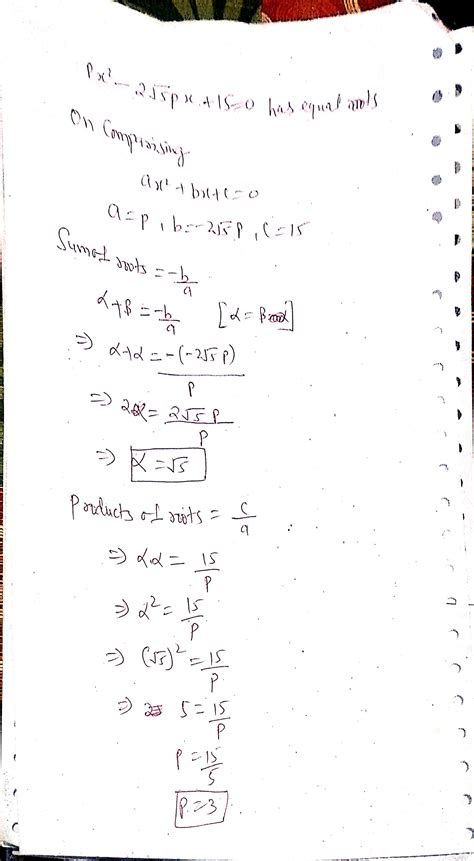 px² - 2√5px + 15=0 has equal roots
On Comprising
ax² + bx+c=0
a=p, b=-2√5p, c=15
Sum of roots = -b/a
α+β = -b/a [α=β]
⇒ α+α = -(-2√5p)/p
⇒ 2α = 2√5p/p
⇒ α=√5
Products of roots = c/a
⇒ αα = 15/p
⇒ α² = 15/p
⇒ (√5)² = 15/p
⇒ 5 = 15/p
p = 15/5
p=3